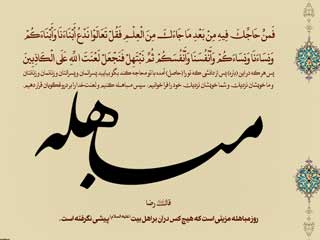 فَمَنْ حَاجَّكَ فِيهِ مِنْ بَعْدِ مَا جَاءَكَ مِنَ الْعِلْمِ فَقُلْ تَعَالَوْا نَدْعُ أَبْنَاءَنَا وَأَبْنَاءَكُمْ
وَنِسَاءَنَا وَنِسَاءَكُمْ وَأَنْفُسَنَا وَأَنْفُسَكُمْ ثُمَّ نَبْتَهِلْ فَنَجْعَلْ لَعْنَتَ اللَّهِ عَلَى الْكَاذِبِينَ
پس هر که در این (باره) پس از دانشی که تو را (حاصل) آمده با تو محاجه کند بگو بیایید پسرانمان و پسرانتان و زنانمان و زنانتان
و ما خویشان نزدیک و شما خویشان نزدیک خود را فرا خوانیم. سپس مباهله کنیم و لعنت خدا را بر دروغگویان قرار دهیم.
مباهله
رضا
روز مباهله مزیتی است که هیچ کس در آن بر اهل بیت (علیهم السلام) پیشی نگرفته است.